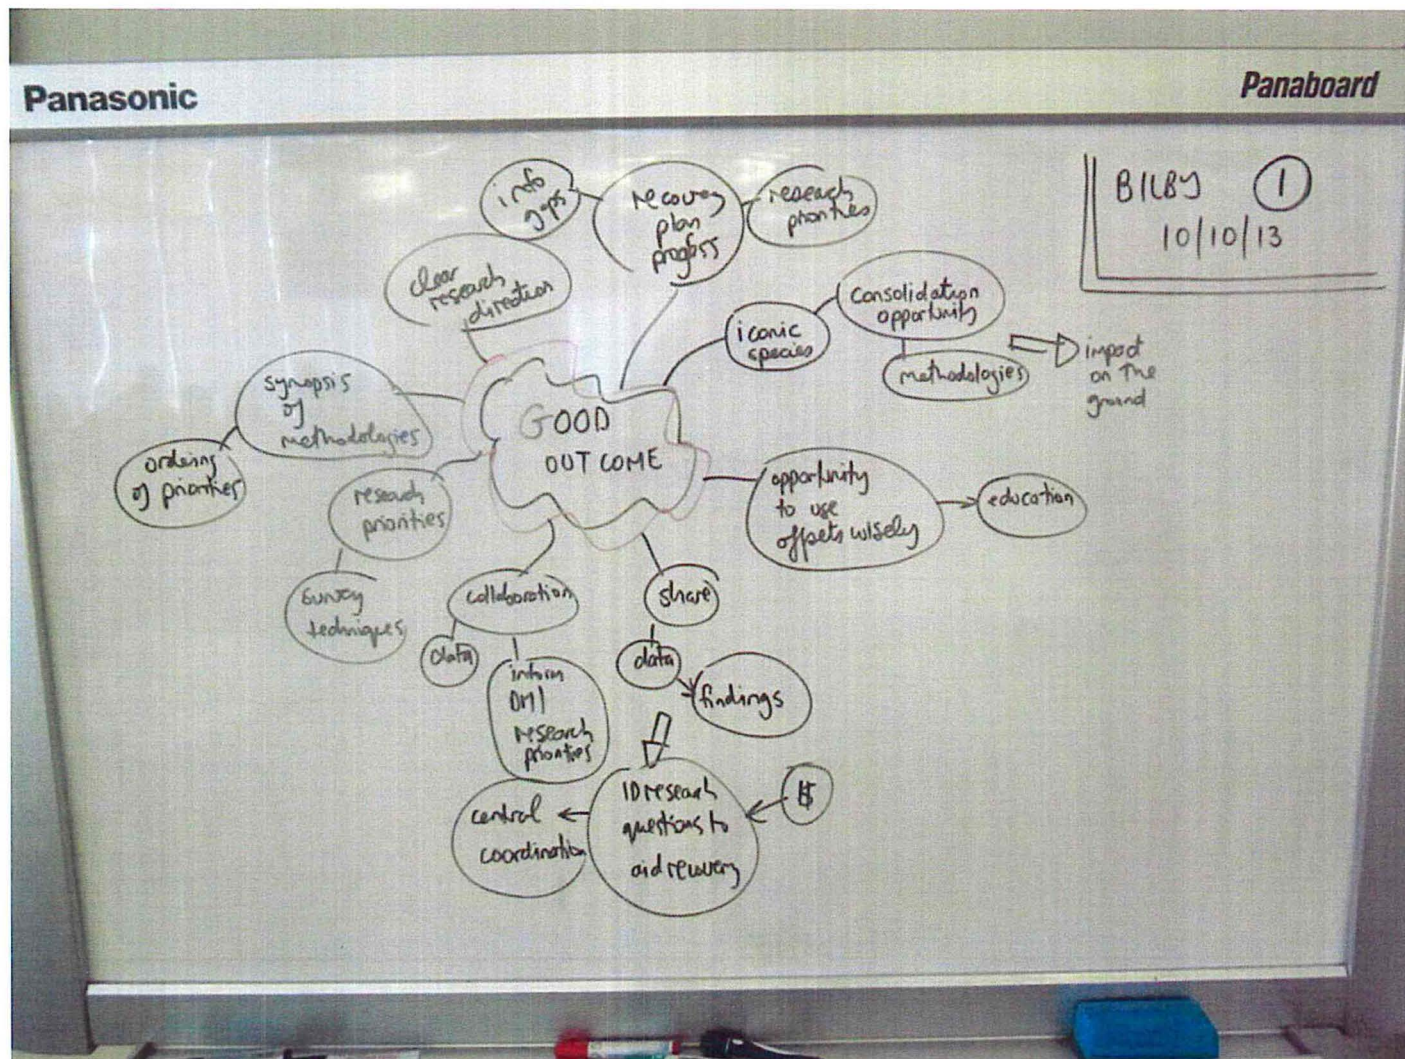 Panasonic
Panaboard
BILBY 1
10/10/13
info
gaps
recovery
plan
progress
research
priorities
clear
research
direction
iconic
species
consolidation
opportunity
methodologies
impact
on the
ground
synopsis
of
methodologies
ordering
of priorities
GOOD
OUTCOME
research
priorities
survey
techniques
opportunity
to use
offsets wisely
education
collaboration
data
inform
research
priorities
share
data
findings
ID research
questions to
aid recovery
central
coordination
$